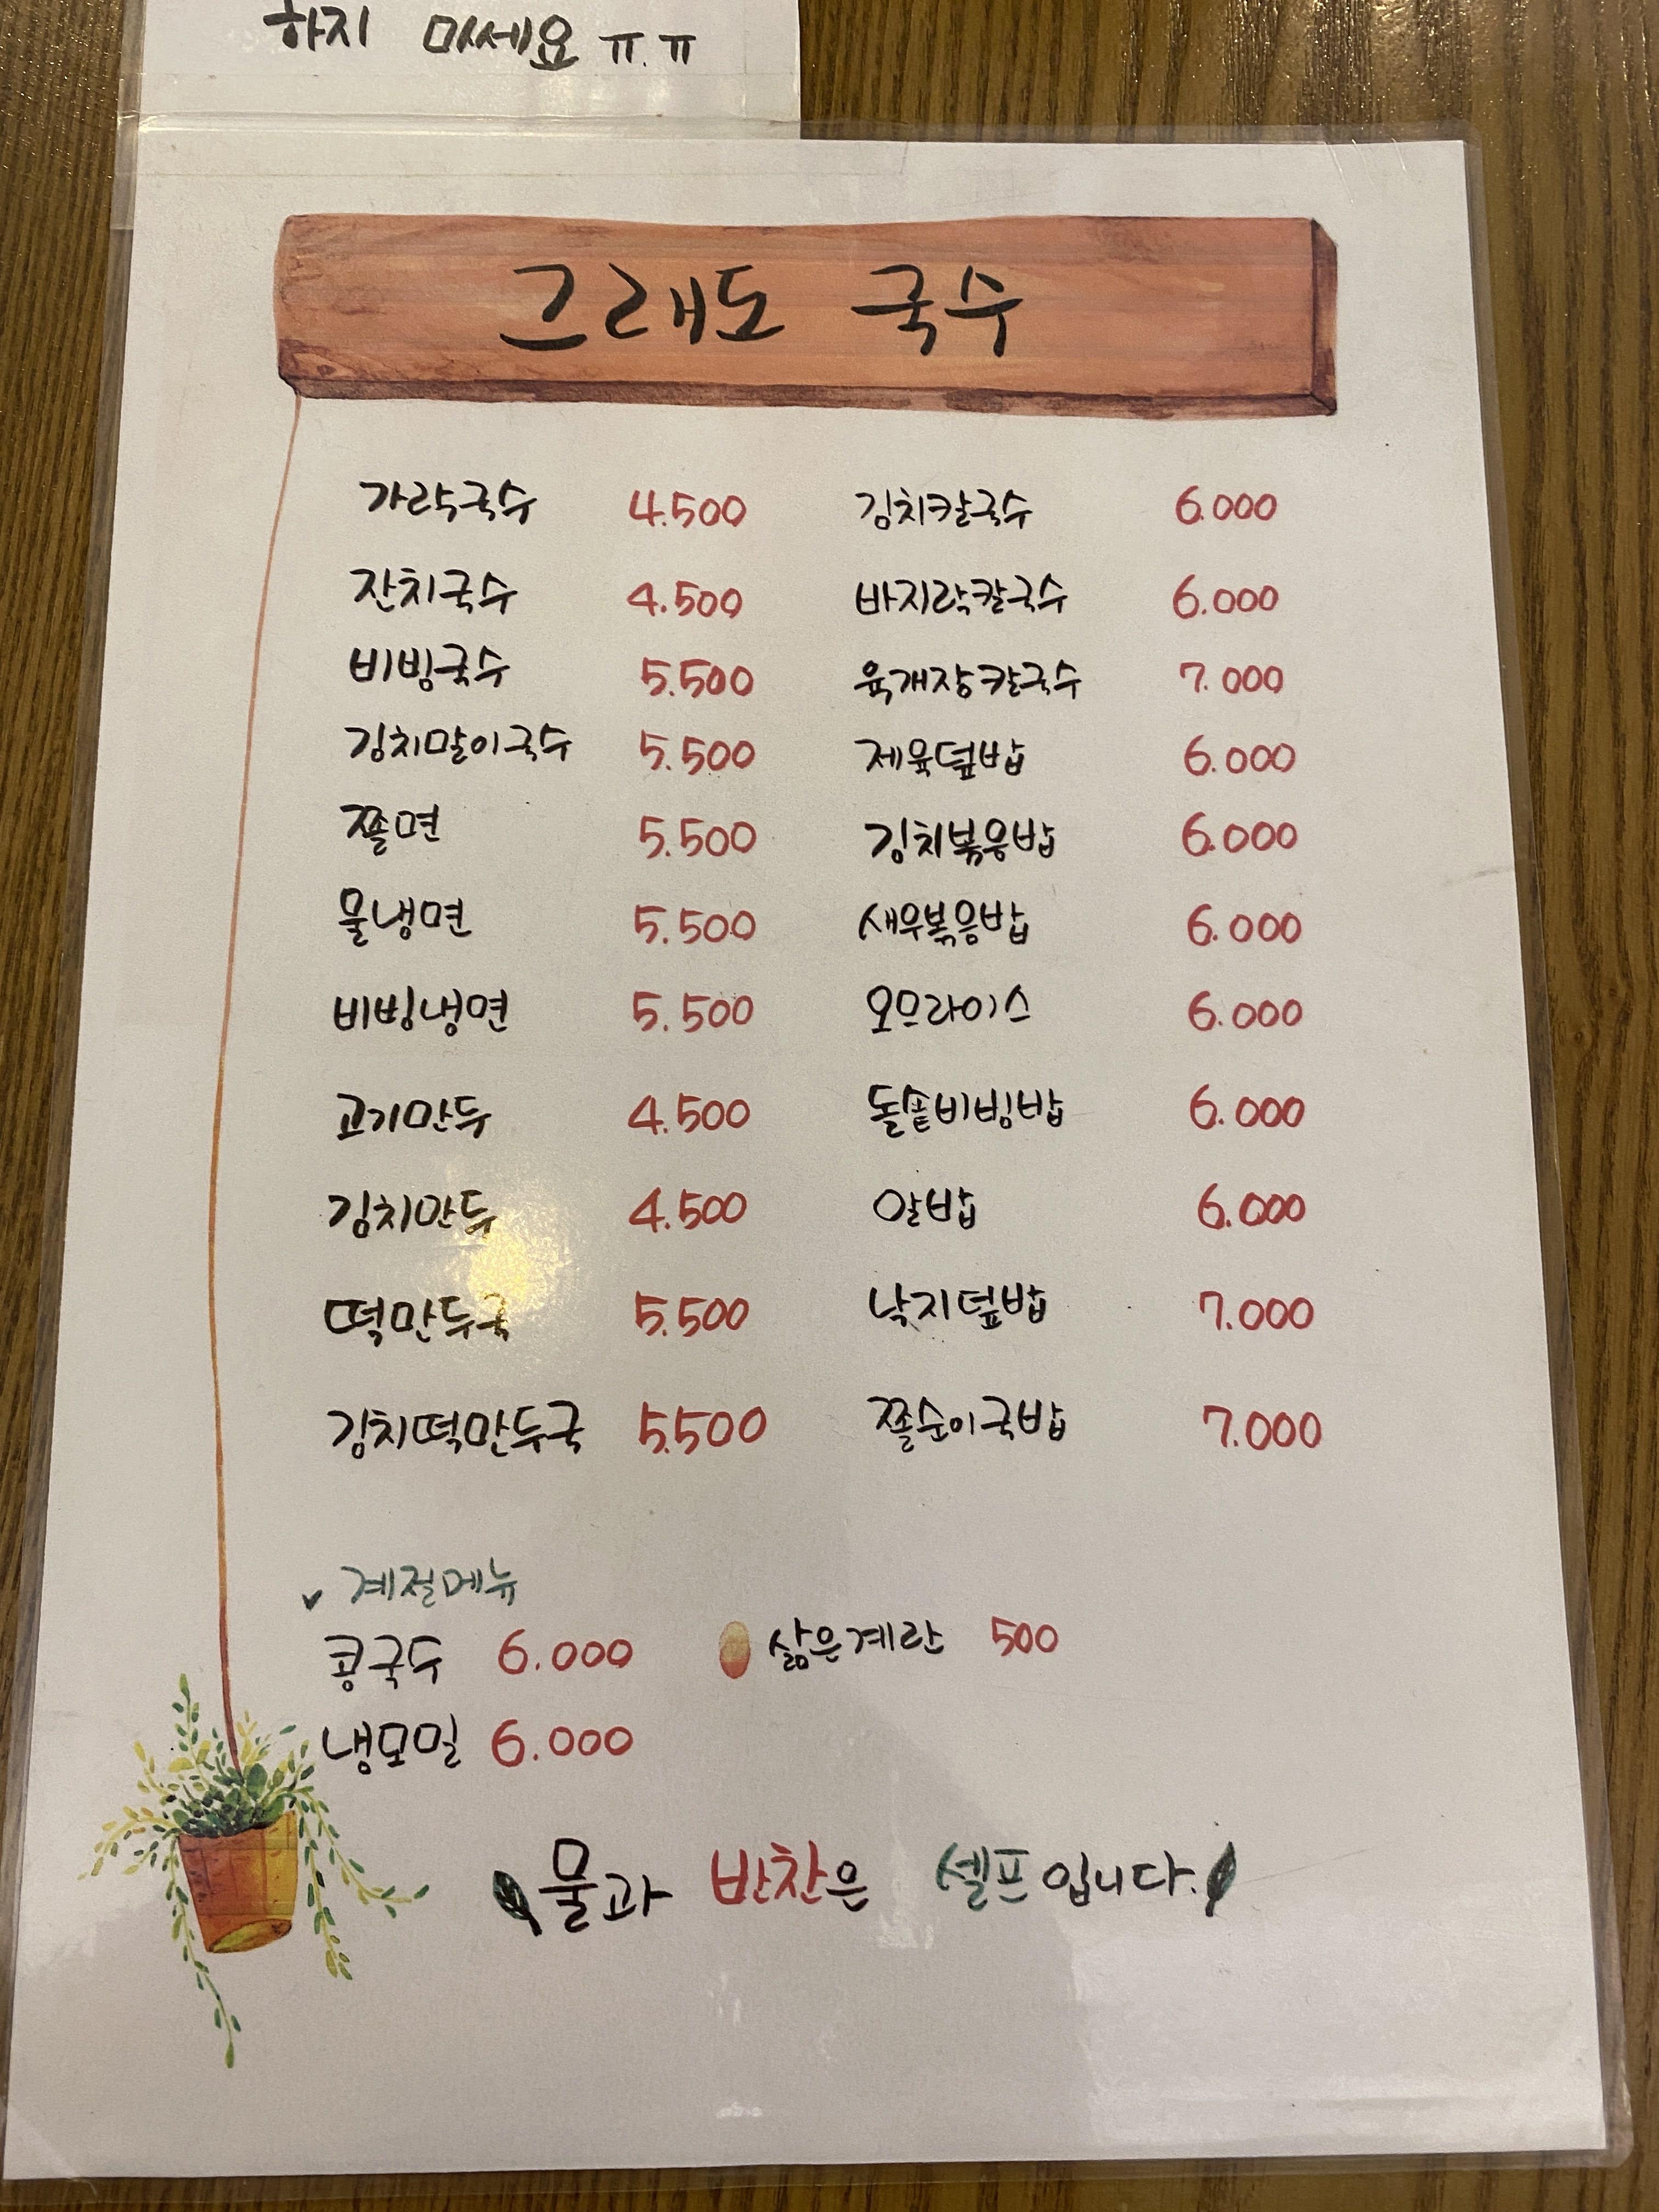 하지 마세요 ㅠ.ㅠ
그래도 국수
가락국수 4.500 김치칼국수 6.000
잔치국수 4.500 바지락칼국수 6.000
비빙국수 5.500 육개장칼국수 7.000
김치말이국수 5.500 제육덮밥 6.000
쫄면 5.500 김치볶음밥 6.000
물냉면 5.500 새우볶음밥 6.000
비빙냉면 5.500 오므라이스 6.000
고기만두 4.500 돌솥비빙밥 6.000
김치만두 4.500 알밥 6.000
떡만두국 5.500 낙지덮밥 7.000
김치떡만두국 5.500 쫄순이국밥 7.000
계절메뉴
콩국수 6.000 삶은계란 500
냉모밀 6.000
물과 반찬은 셀프입니다.